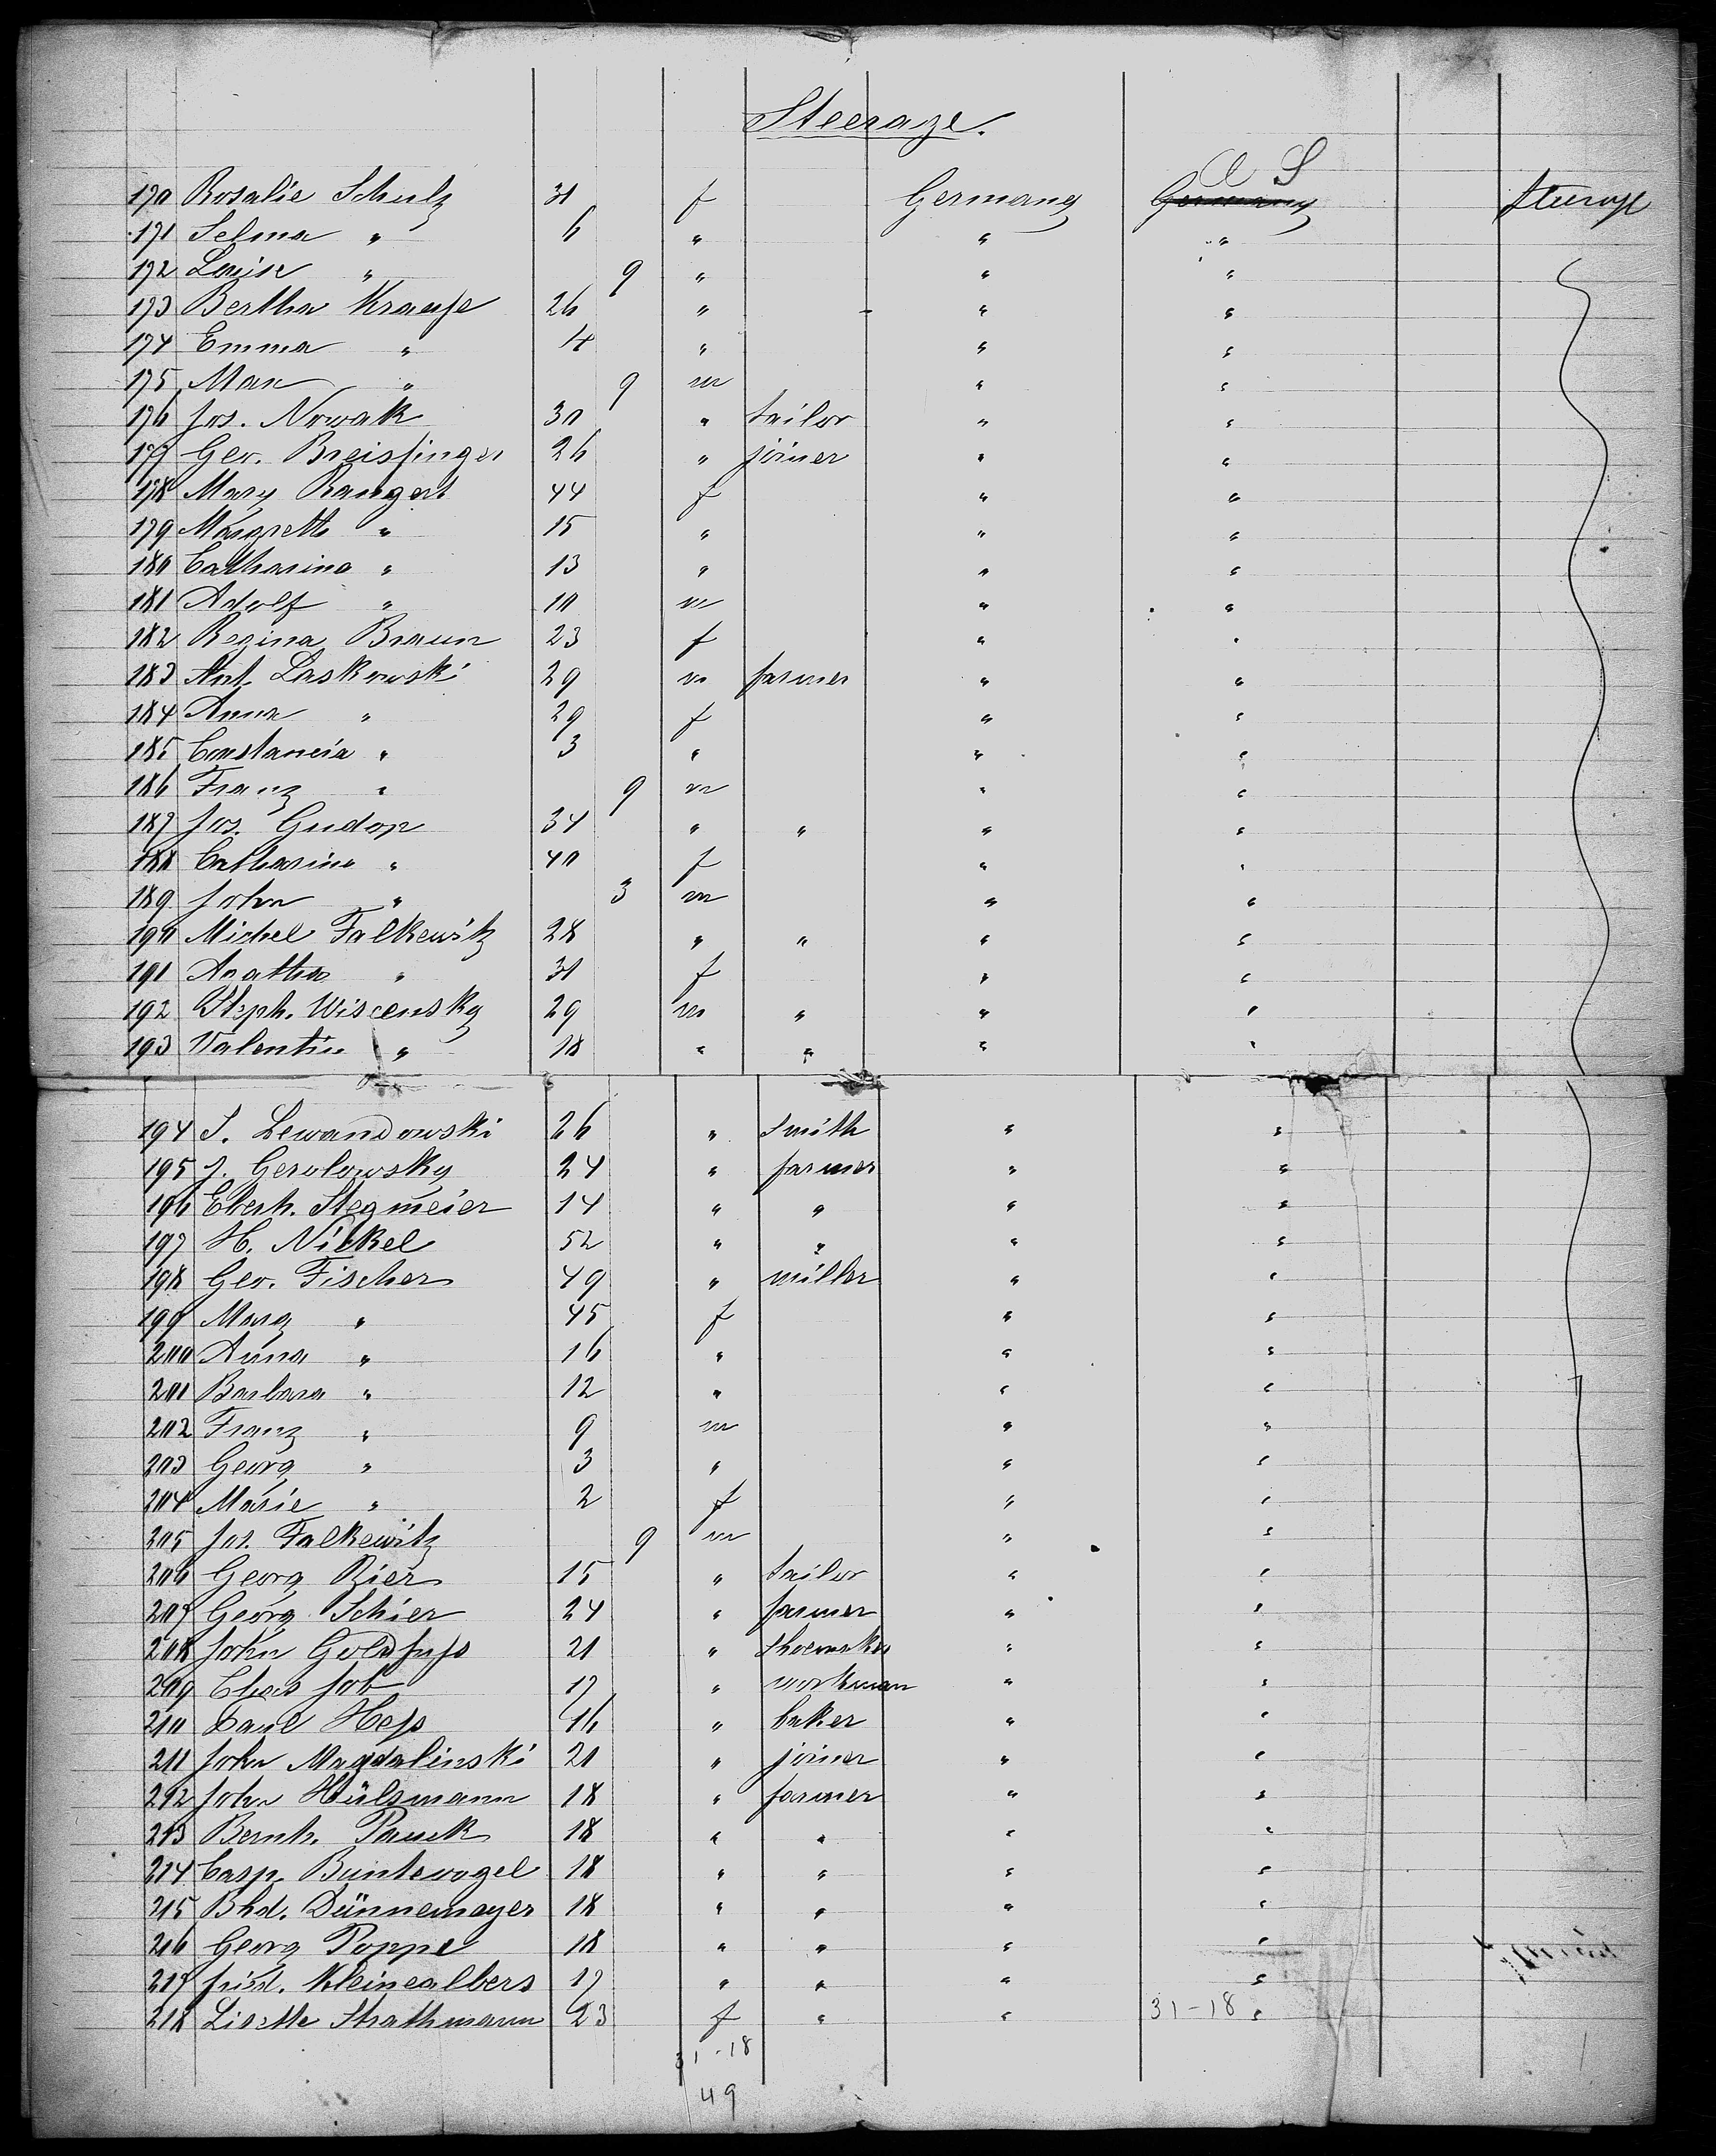 Steerage.
U S
170 Rosalie Schulz 31 f Germany Germany Steerage
171 Selma " 6 " " "
172 Louise " 9 " " "
173 Bertha Krause 26 " " "
174 Emma " 4 " " "
175 Max " 9 m " "
176 Jos. Nowak 30 " tailor " "
177 Geo. Breissinger 26 " joiner " "
178 Mary Bangert 44 f " "
179 Margreth " 15 " " "
180 Catharina " 13 " " "
181 Adolf " 10 m " "
182 Regina Braun 23 f " "
183 Ant. Laskowski 29 m farmer " "
184 Anna " 29 f " "
185 Constancia " 3 " " "
186 Franz " 9 m " "
187 Jos. Gudop 34 " " " "
188 Catharina " 40 f " "
189 John " 3 m " "
190 Michel Falkewitz 28 " " " "
191 Agatha " 31 f " "
192 Steph. Wiscensky 29 m " " "
193 Valentin " 18 " " " "
194 J. Lewandowski 26 " smith " "
195 J. Gerolowsky 24 " farmer " "
196 Eberh. Stegmeier 14 " " " "
197 H. Nickel 52 " " " "
198 Geo. Fischer 49 " miller " "
199 Marg " 45 f " "
200 Anna " 16 " " "
201 Barbara " 12 " " "
202 Franz " 9 m " "
203 Georg " 3 " " "
204 Marie " 2 f " "
205 Jos. Falkewitz 9 m " "
206 Georg Bier 15 " tailor " "
207 Georg Schier 24 " farmer " "
208 John Goldfuss 21 " shoemaker " "
209 Elias Job 17 " workman " "
210 Paul Hess 46 " baker " "
211 John Magdalinski 21 " joiner " "
212 John Hülsmann 18 " farmer " "
213 Bernh. Pauck 18 " " " "
214 Casp. Buntevogel 18 " " " "
215 Bhd. Dünnemayer 18 " " " "
216 Georg Poppe 18 " " " "
217 fried. Kleinealbers 17 " " " "
218 Lisette Strathmann 23 f " " 31-18 "
31-18
49